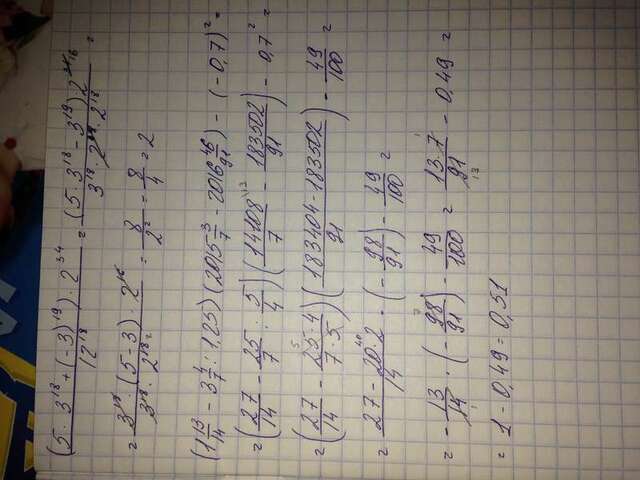 (5 · 3^18 + (-3)^19) · 2^34 / 12^18 = (5 · 3^18 - 3^19) 2^34 16 / 3^18 · 2^18 · 2^18 =
= 3^18 · (5 - 3) · 2^16 / 3^18 · 2^18 2 = 8 / 2^2 = 8/4 = 2
(1 13/14 - 3 4/7 : 1,25) (2015 3/7 - 2016 46/91) - (-0,7)^2 =
= (27/14 - 25/7 : 5/4) (14108/7 \13 - 183502/91) - 0,7^2 =
= (27/14 - 25 5 · 4 / 7 · 5) (183404 - 183502 / 91) - 49/100 =
= 27 - 20 · 2 40 / 14 · (- 98/91) - 49/100 =
= - 13/14 1 · (- 98 7 / 91) - 49/100 = 13 · 7 1 / 91 13 - 0,49 =
= 1 - 0,49 = 0,51